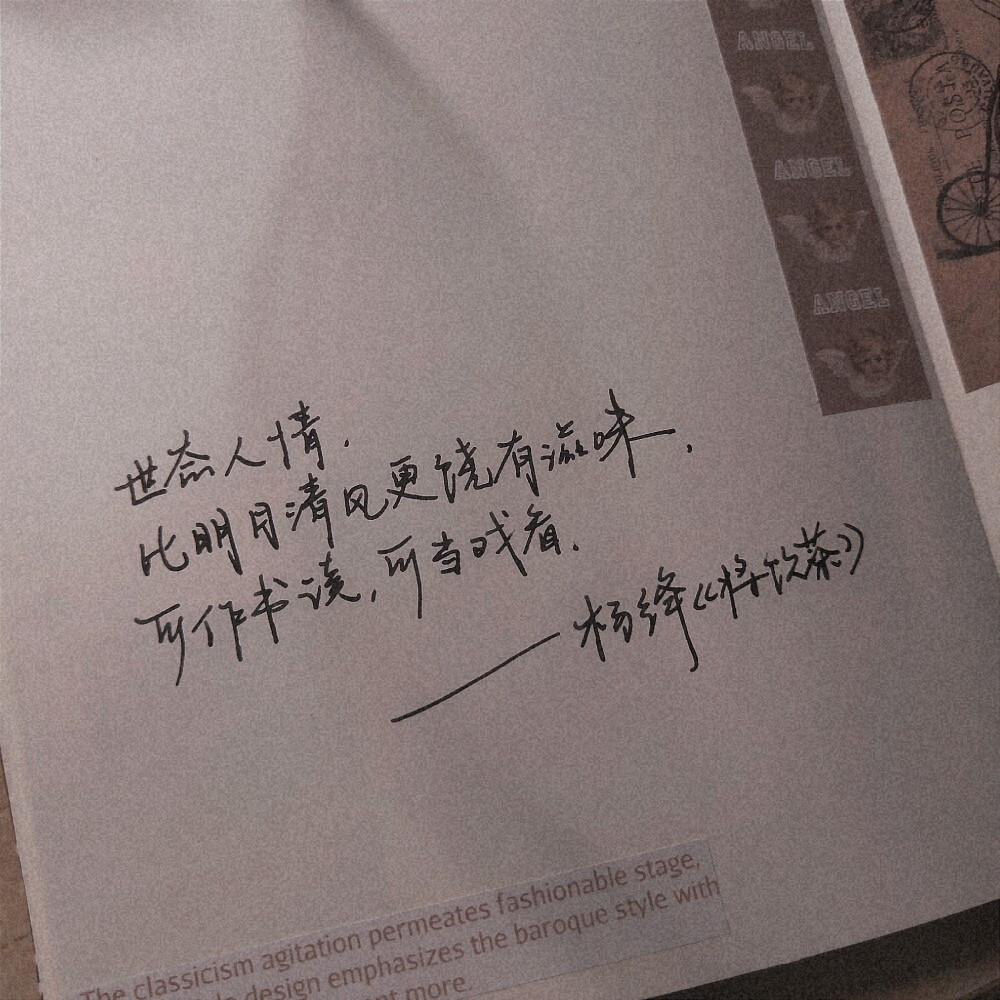 ANGEL
ANGEL
ANGEL
POSTA
世态人情.
比明月清风更饶有滋味,
可作书读,可当戏看.
——杨绛《将饮茶》
The classicism agitation permeates fashionable stage,
design emphasizes the baroque style with
more.